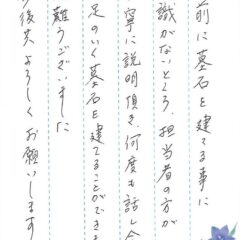 前に墓石を建てる事に
識がないところ、担当者の方が
寧に説明頂き、何度も話し合
足のいく墓石を建てることができま
難うございました
後共よろしくお願いします